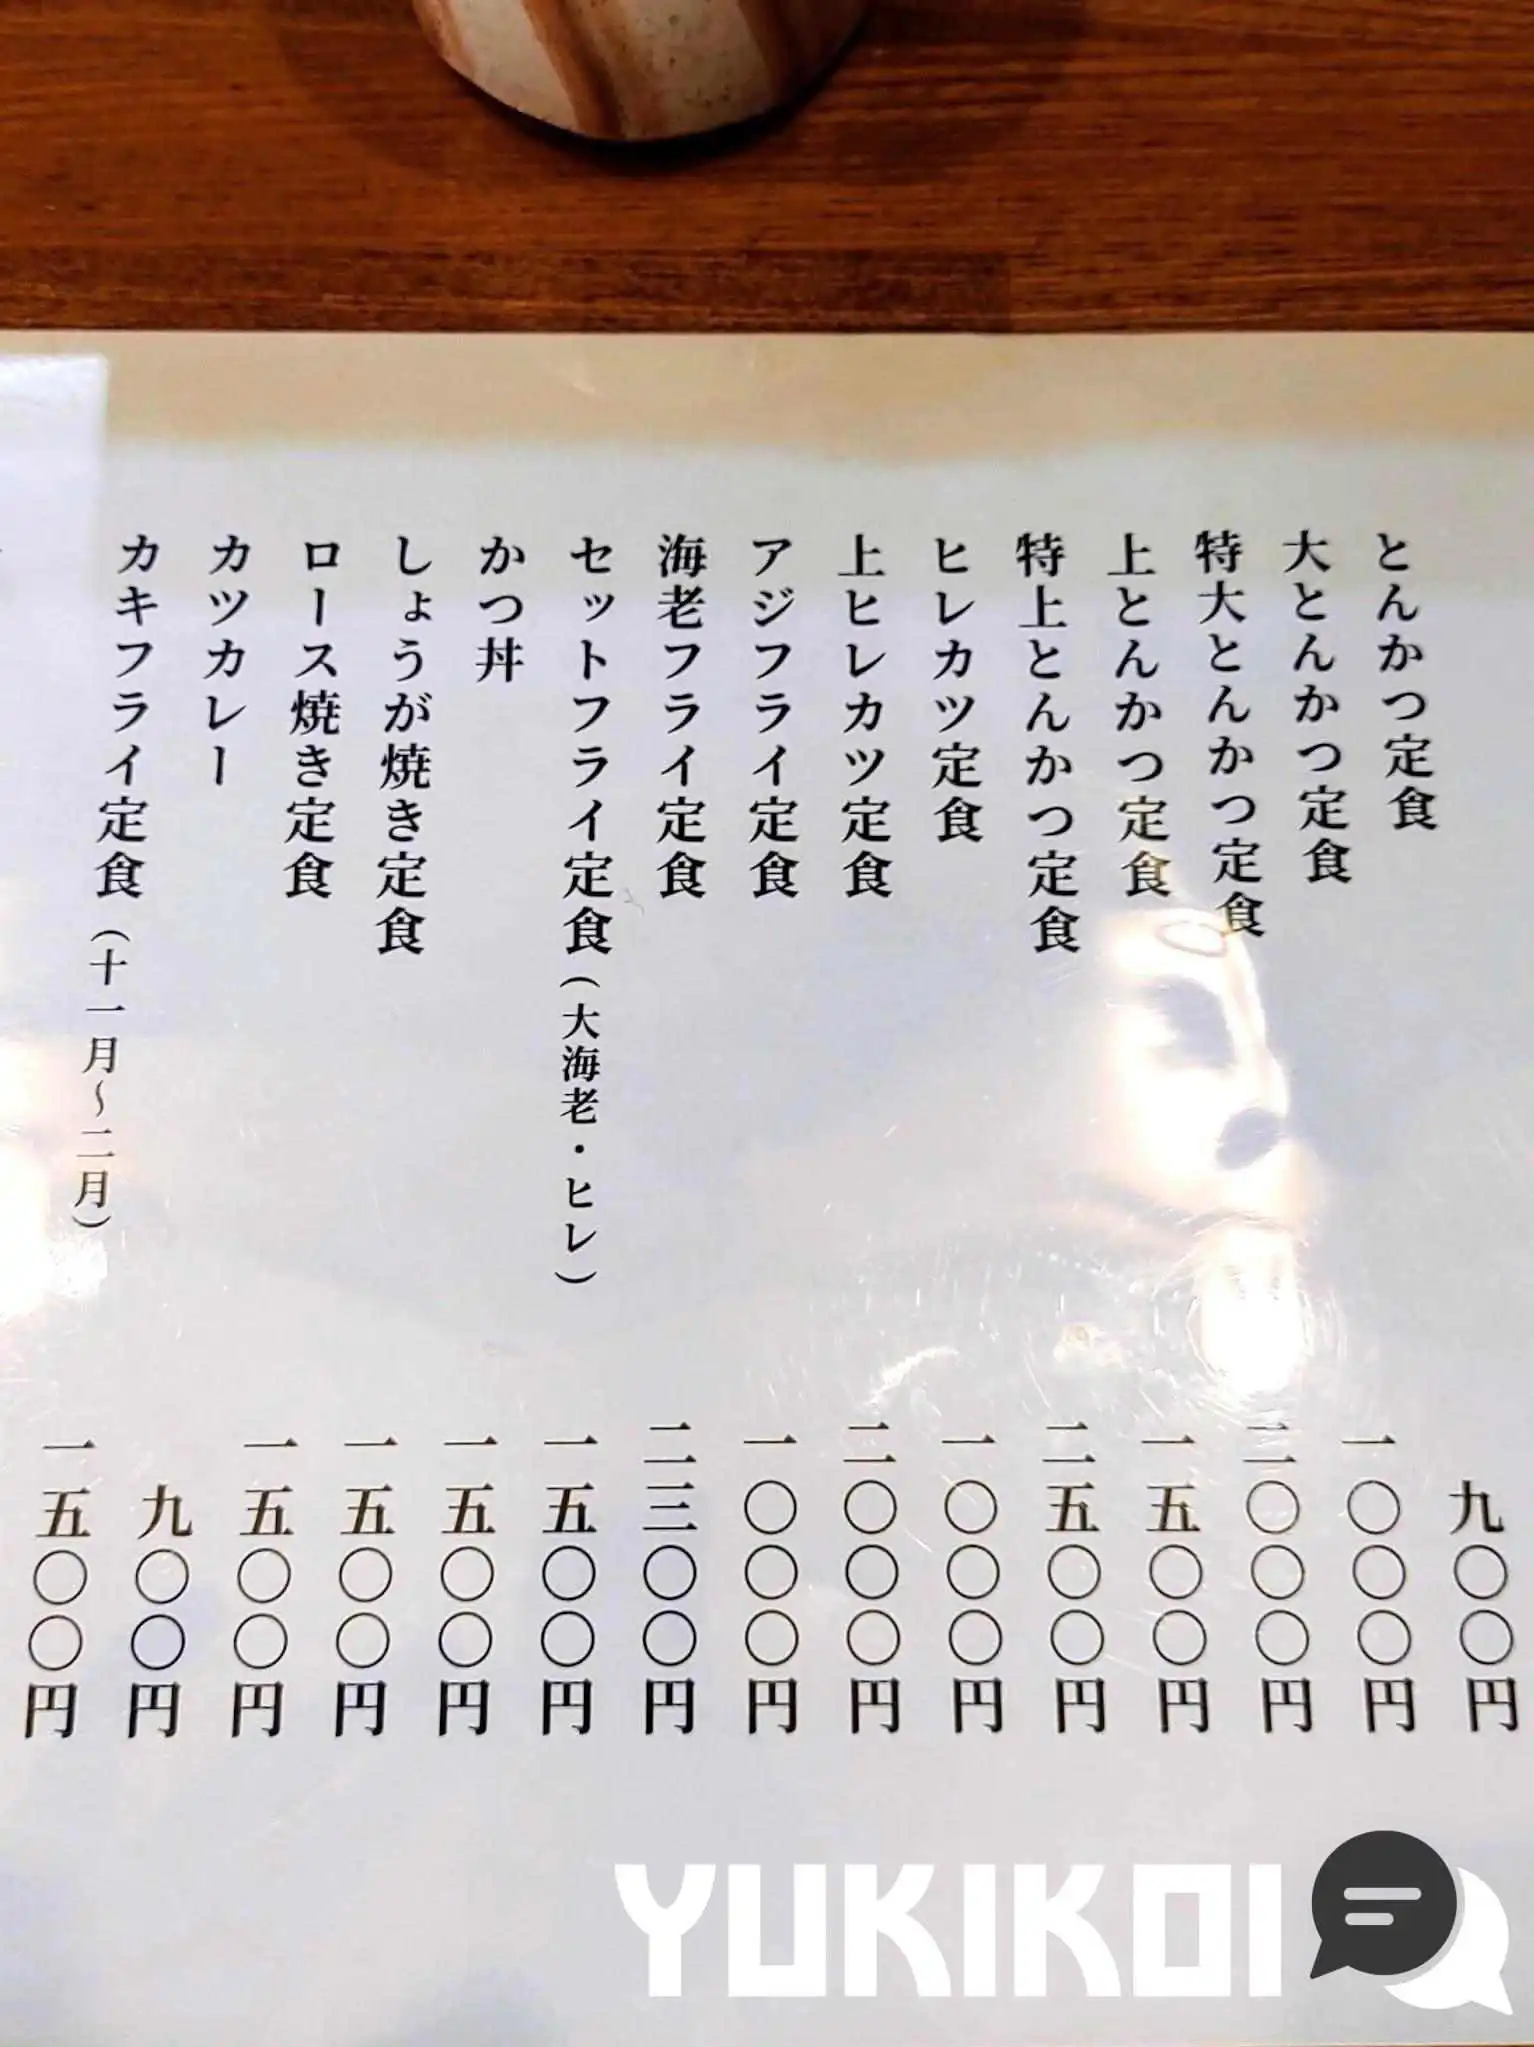 とんかつ定食 九〇〇円
大とんかつ定食 一〇〇〇円
特大とんかつ定食 二〇〇〇円
上とんかつ定食 一五〇〇円
特上とんかつ定食 二五〇〇円
ヒレカツ定食 一〇〇〇円
上ヒレカツ定食 二〇〇〇円
アジフライ定食 一〇〇〇円
海老フライ定食 二三〇〇円
セットフライ定食(大海老・ヒレ) 一五〇〇円
かつ丼 一五〇〇円
しょうが焼き定食 一五〇〇円
ロース焼き定食 一五〇〇円
カツカレー 九〇〇円
カキフライ定食(十一月〜二月) 一五〇〇円
YUKIKOI